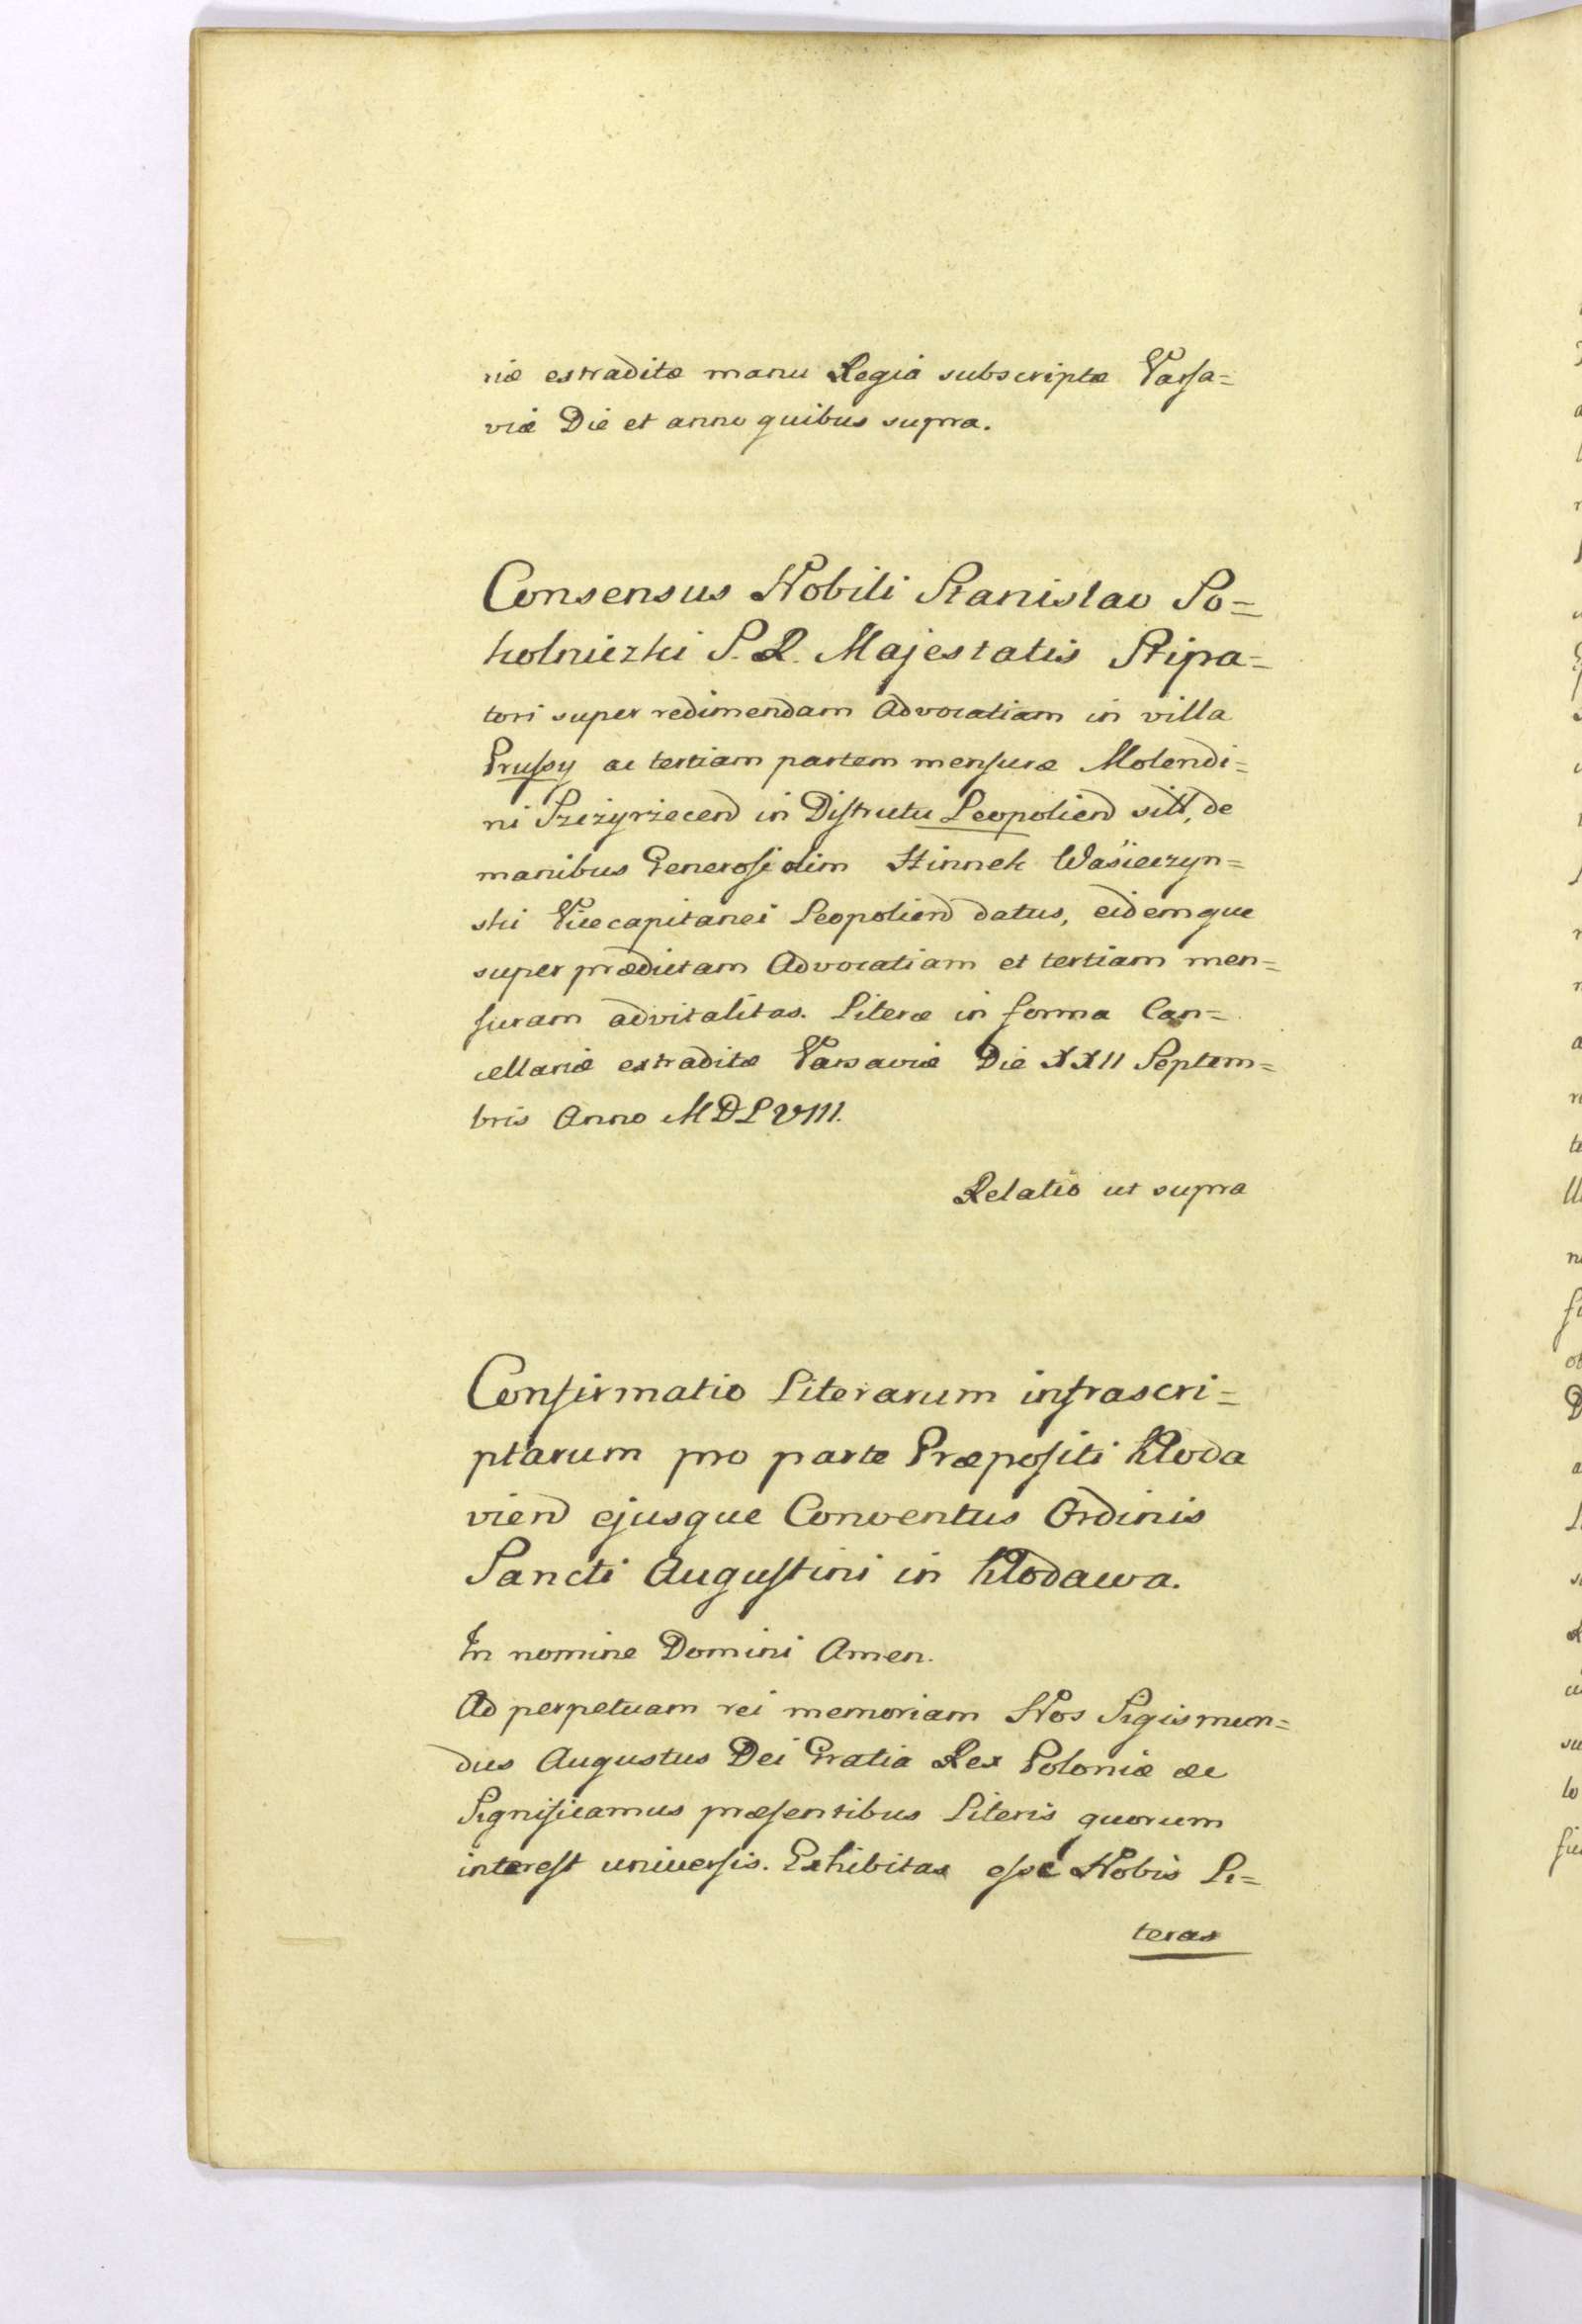 niæ extraditæ manu Regia subscriptæ Varsa=
viæ Die et anno quibus supra.
Consensus Nobili Stanislao So=
kolniczki S. R. Majestatis Stipa=
tori super redimendam Advocatiam in villa
Prussy ac tertiam partem mensuræ Molendi=
ni Szczyrzecen in Districtu Leopolien sitt, de
manibus Generosi olim Hinnek Wasieczyn=
ski Vicecapitanei Leopolien datus, eidemque
super prædictam Advocatiam et tertiam men=
suram advitalitas. Literæ in forma Can=
cellariæ extraditæ Varsaviæ Die XXII Septem=
bris Anno MDLVIII.
Relatio ut supra
Confirmatio Literarum infrascri=
ptarum pro parte Præpositi Kloda
vien ejusque Conventus Ordinis
Sancti Augustini in Klodawa.
In nomine Domini Amen.
Ad perpetuam rei memoriam Nos Sigismun=
dus Augustus Dei Gratia Rex Poloniæ &c
Significamus præsentibus Literis quorum
interest universis. Exhibitas esse Nobis Li=
teras